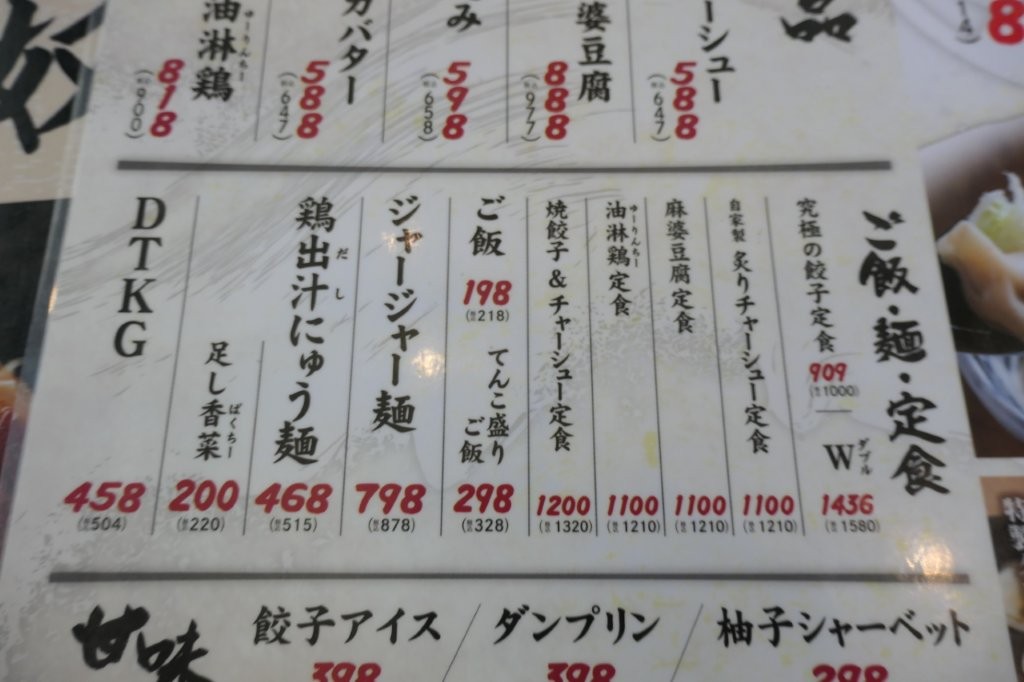 品
ーシュー
588
(税込647)
婆豆腐
888
(税込977)
み
598
(税込658)
ガバター
588
(税込647)
油淋鶏
ゆーりんちー
818
(税込900)
ご飯・麺・定食
究極の餃子定食
909
(税込1000)
W
ダブル
1436
(税込1580)
自家製 炙りチャーシュー定食
1100
(税込1210)
麻婆豆腐定食
1100
(税込1210)
油淋鶏定食
ゆーりんちー
1100
(税込1210)
焼餃子&チャーシュー定食
1200
(税込1320)
ご飯
198
(税込218)
てんこ盛り
ご飯
298
(税込328)
ジャージャー麺
798
(税込878)
鶏出汁にゅう麺
だし
468
(税込515)
足し香菜
ぱくちー
200
(税込220)
DTKG
458
(税込504)
甘味
餃子アイス
398
ダンプリン
398
柚子シャーベット
298